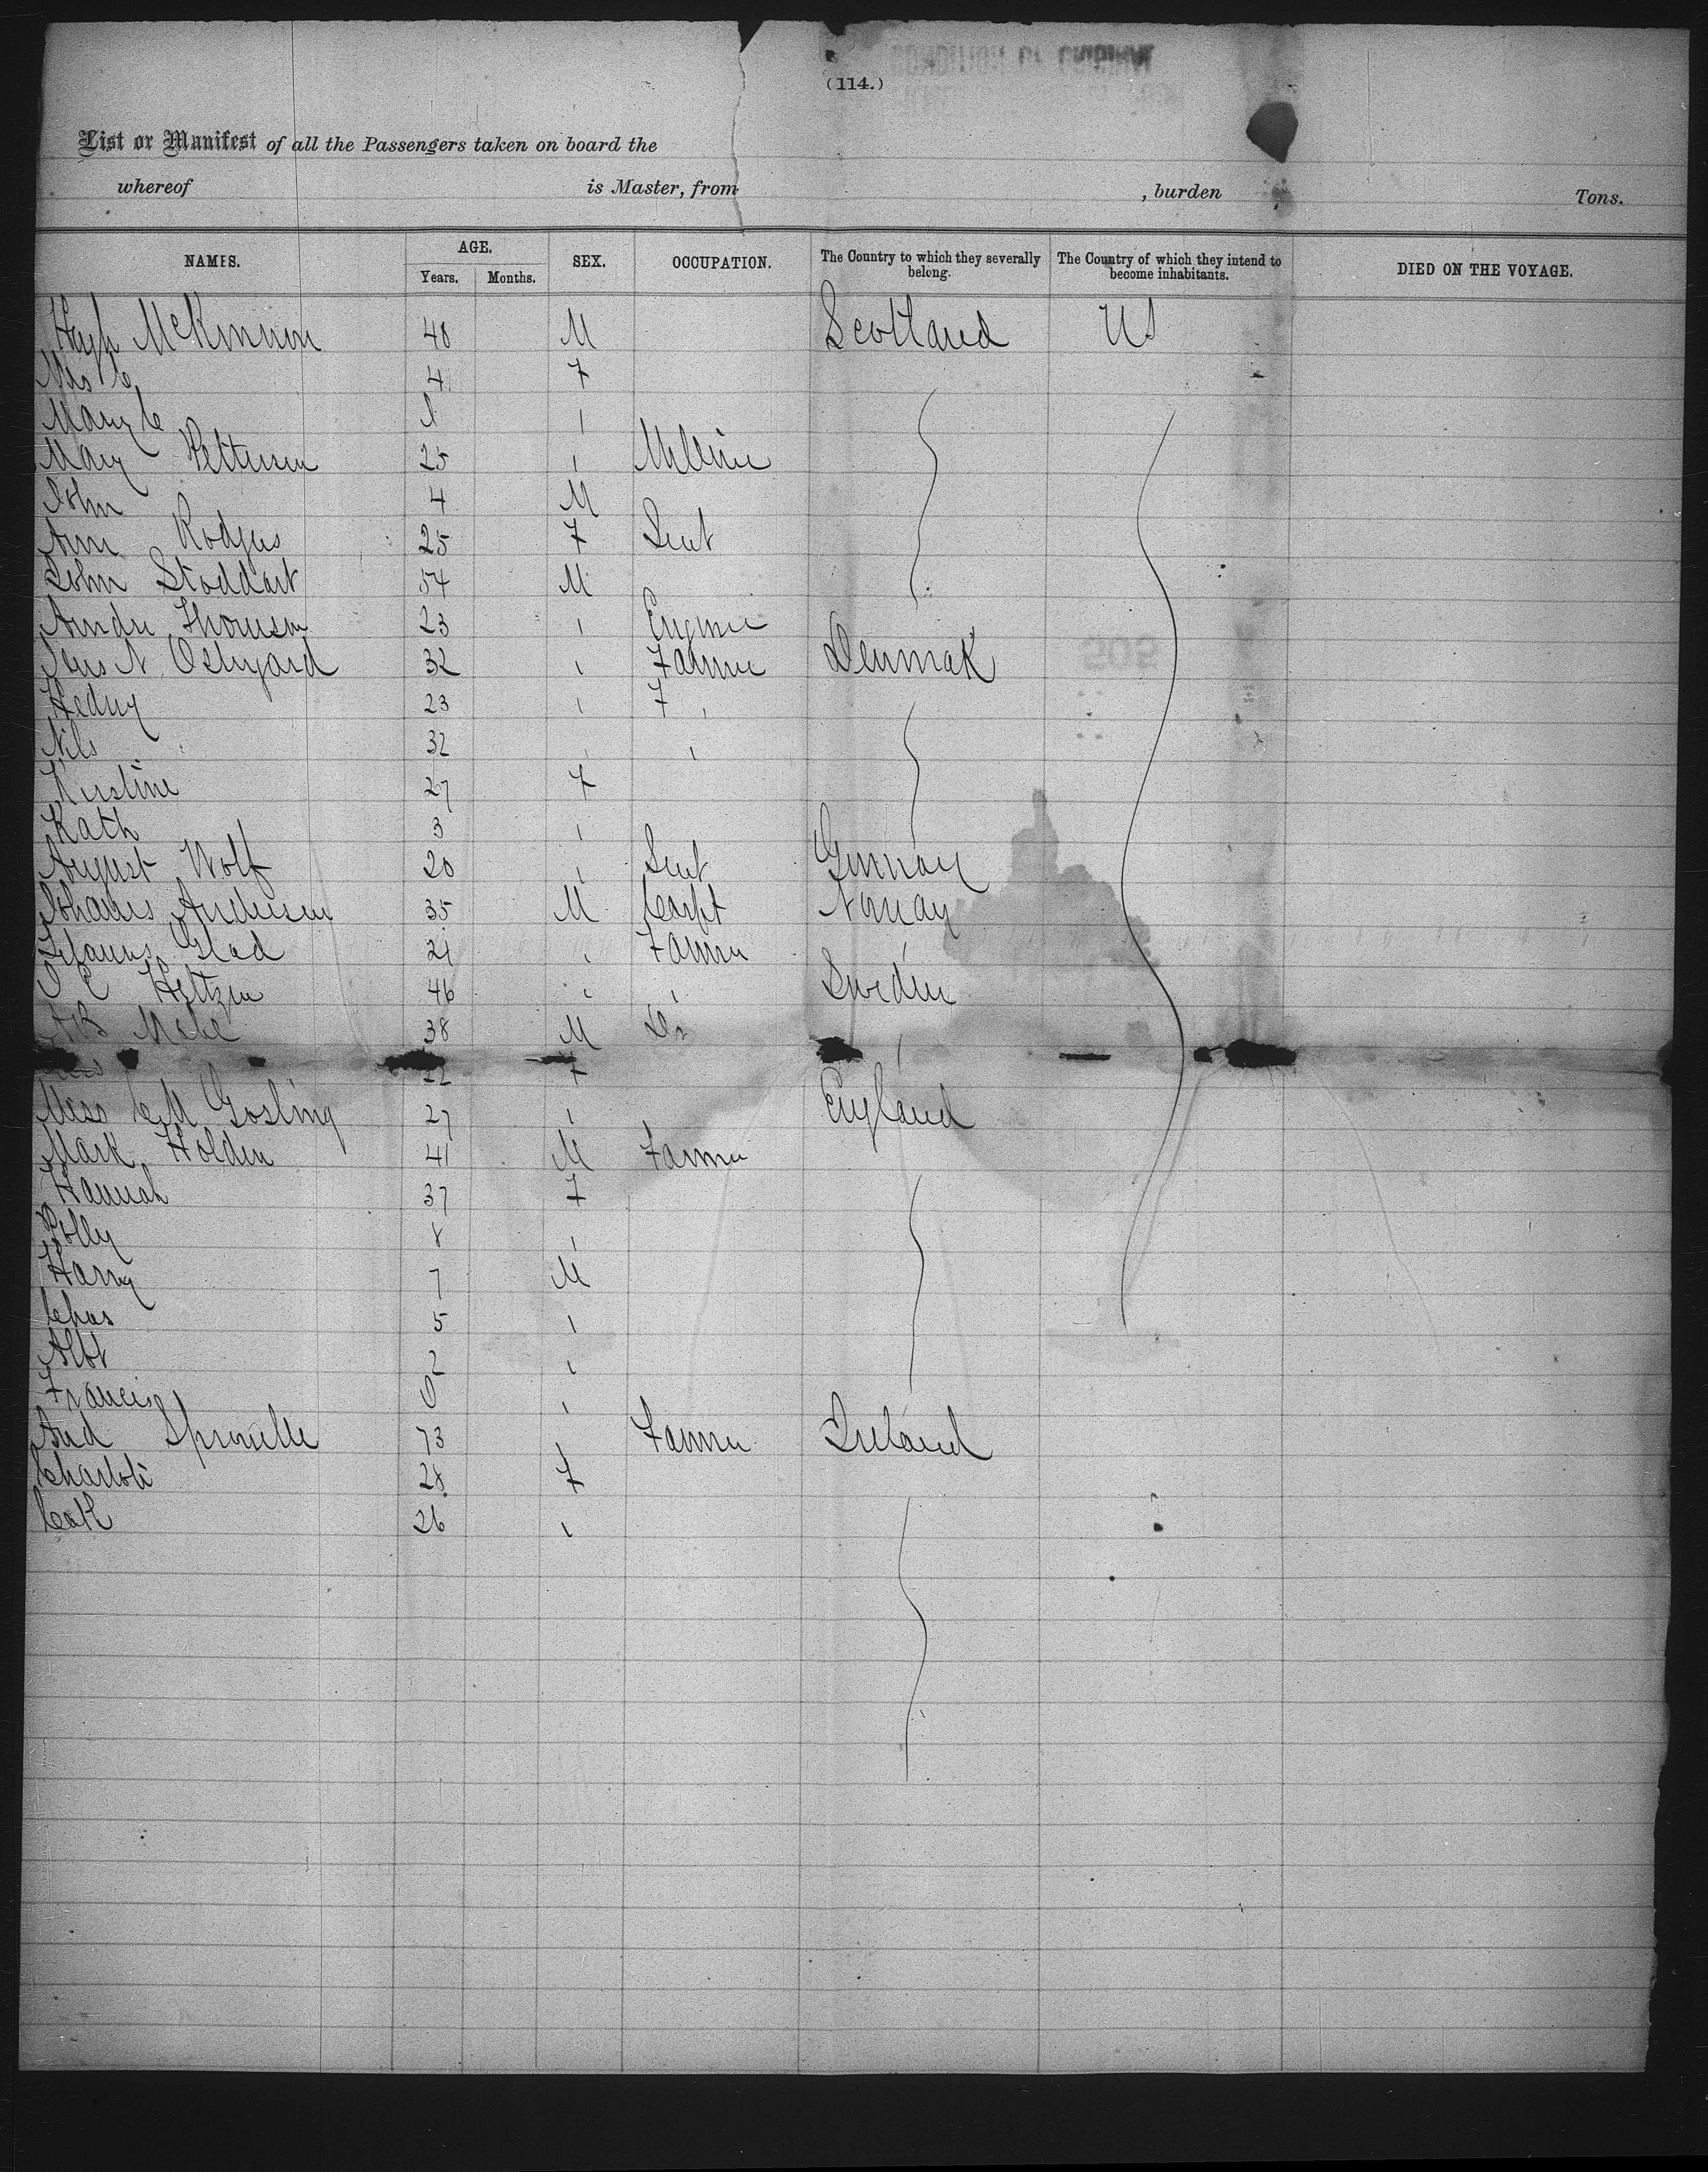 (114.)
List or Manifest of all the Passengers taken on board the
whereof is Master, from , burden Tons.
NAMES. AGE. Years. Months. SEX. OCCUPATION. The Country to which they severally belong. The Country of which they intend to become inhabitants. DIED ON THE VOYAGE.
Hugh McKinnon 40 M Scotland US
Mrs C 4 F
Mary C
Mary Petterson 25 Milliner
John 4 M
Ann Rodgers 25 F Servt
John Stoddart 54 M
Thomson 23 Engineer
Jens N. 32 Farmer Denmark
Hedwig 23 F
Nils 32
Kirstine 27 F
Kath 3
August Wolf 20 Servt Germany
Johannes Andersen 35 M Carpt Norway
Glad 21 Farmer
46 Sweden
38 M Dr
22 F
Miss C M Gosling 27 England
Mark Holden 41 M Farmer
Hannah 37 F
Polly 8
Harry 7 M
Chas 5
Albt 2
Francis 0
And Sproulle 73 Farmer Ireland
Charlott 28 F
Cath 26